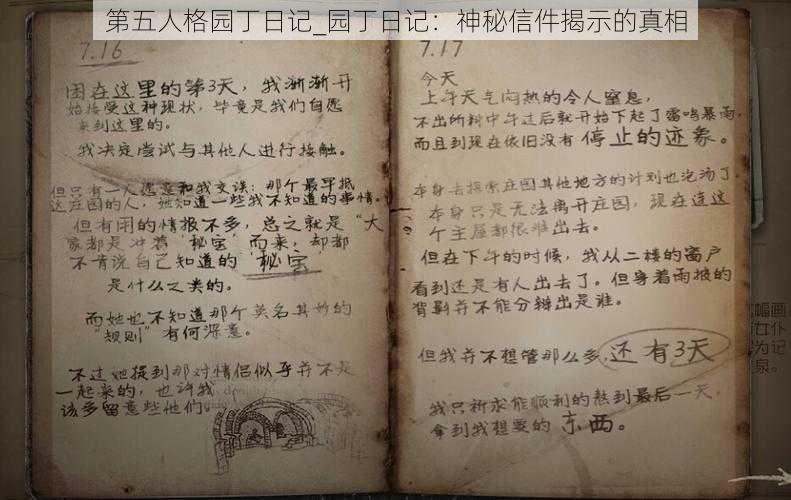 第五人格园丁日记_园丁日记：神秘信件揭示的真相
7.16
困在这里的第3天，我渐渐开
始接受这种现状，毕竟是我们自愿
来到这里的。
我决定尝试与其他人进行接触。
但只有一人愿意和我交谈：那个最早抵
达庄园的人，她知道一些我不知道的事情。
但有用的情报不多，总之就是“大
家都是冲着‘秘宝’而来，却都
不肯说自己知道的‘秘宝’
是什么之类的。
而她也不知道那个莫名其妙的
“规则”有何深意。
不过她提到那对情侣似乎并不是
一起来的，也许我
该多留意些他们
7.17
今天
上午天气闷热的令人窒息，
不出所料中午过后就开始下起了雷鸣暴雨，
而且到现在依旧没有停止的迹象。
本身去探索庄园其他地方的计划也泡汤了
本身只是无法离开庄园，现在连这
个主屋都很难出去。
但在下午的时候，我从二楼的窗户
看到还是有人出去了。但穿着雨披的
背影并不能分辨出是谁。
但我并不想管那么多，还有3天
我只祈求能顺利的熬到最后一天，
拿到我想要的东西。
幅画
女仆
为记
泉。